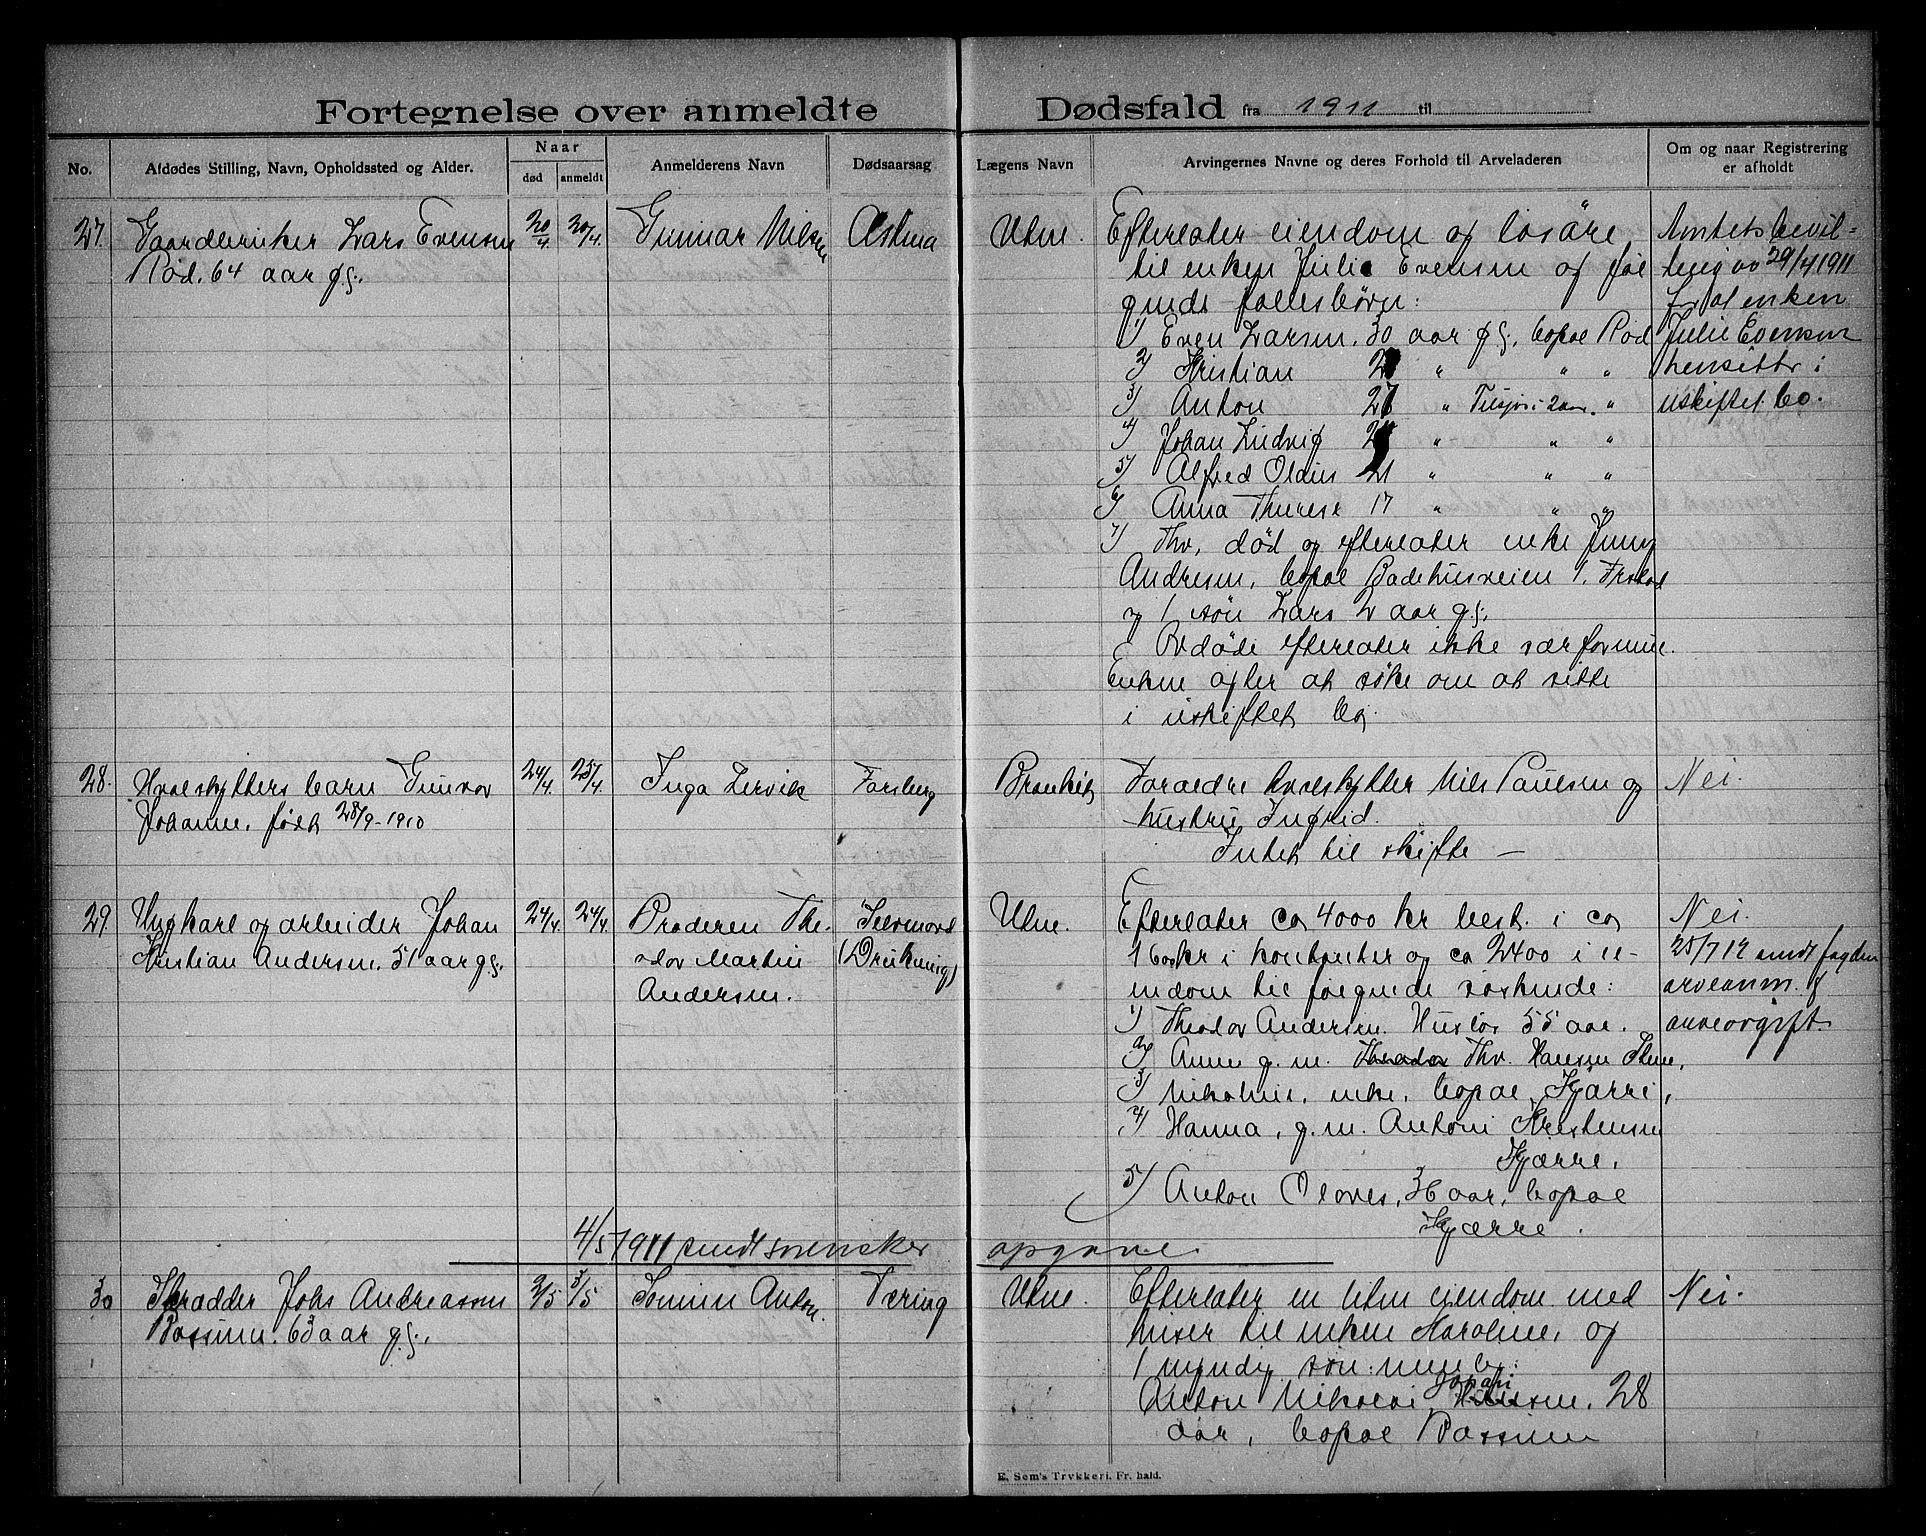 Fortegnelse over anmeldte Dødsfald fra 1911 til
No.
Afdødes Stilling, Navn, Opholdssted og Alder.
Naar
død
anmeldt
Anmelderens Navn
Dødsaarsag
Lægens Navn
Arvingernes Navne og deres Forhold til Arveladeren
Om og naar Registrering
er afholdt
27.
Gaardbruker Lars Evensen
Rød. 64 aar g.
20/4
20/4.
Gunnar Nilsen
Astma
Utne.
Efterlater eiendom og løsøre
til enken Julie Evensen og føl
gende fællesbørn:
1) Even Larsen, 30 aar g., bopæl Rød
2) Kristian " " "
3) Anton 27 " " "
4) Johan Ludvig " " "
5) Alfred Oldus 21 " " "
6) Anna Therese 17 " " "
7) Thv. død og efterlater enke Jenny
Andresen, bopæl Badehusveien 1, Frstad
og 1 søn Lars 2 aar g.
Avdøde efterlater ikke særformue.
Enken agter at søke om at sitte
i uskiftet bo.
Amtets bevil=
ling av 29/4 1911
for at enken
Julie Evensen
hensitter i
uskiftet bo.
28.
Hvalskytters barn Gunvor
Johanne, født 28/9-1910
24/4
25/4
Inga Lervik
Forsberg
Bronkit
Forældre hvalskytter Nils Paulsen og
hustru Ingrid.
Intet til skifte —
Nei.
29.
Ungkarl og arbeider Johan
Kristian Andersen. 51 aar g.
24/4.
24/4.
Broderen The-
odor Martin
Andersen.
Selvmord
(Drukning)
Utne.
Efterlater ca 4000 kr best. i ca
1600 kr i kontanter og ca 2400 i ei-
endom til følgende søskende:
1) Theodor Andersen. Husløs 55 aar.
2) Anne g. m. Thv. Hansen
3) Nikoline, enke, bopæl Kjærre,
4) Hanna, g. m. Anton Kristensen
Kjærre.
5) Anton Olaves, 36 aar, bopæl
Kjærre.
Nei.
25/7 12 sendt fogden
arveanm. &
arveavgift
4/5 1911 sendt sorensker opgave
30
Skrædder Johs Andreassen
Bossum. 63 aar g.,
2/5
3/5
Sønnen Anton.
Tæring
Utne.
Efterlater en liten eiendom med
huser til enken Karoline, og
1 myndig søn:
Anton Nikolai Johan 28
aar, bopæl Bossum
Nei.
E. Sem's Trykkeri, Fr.hald.